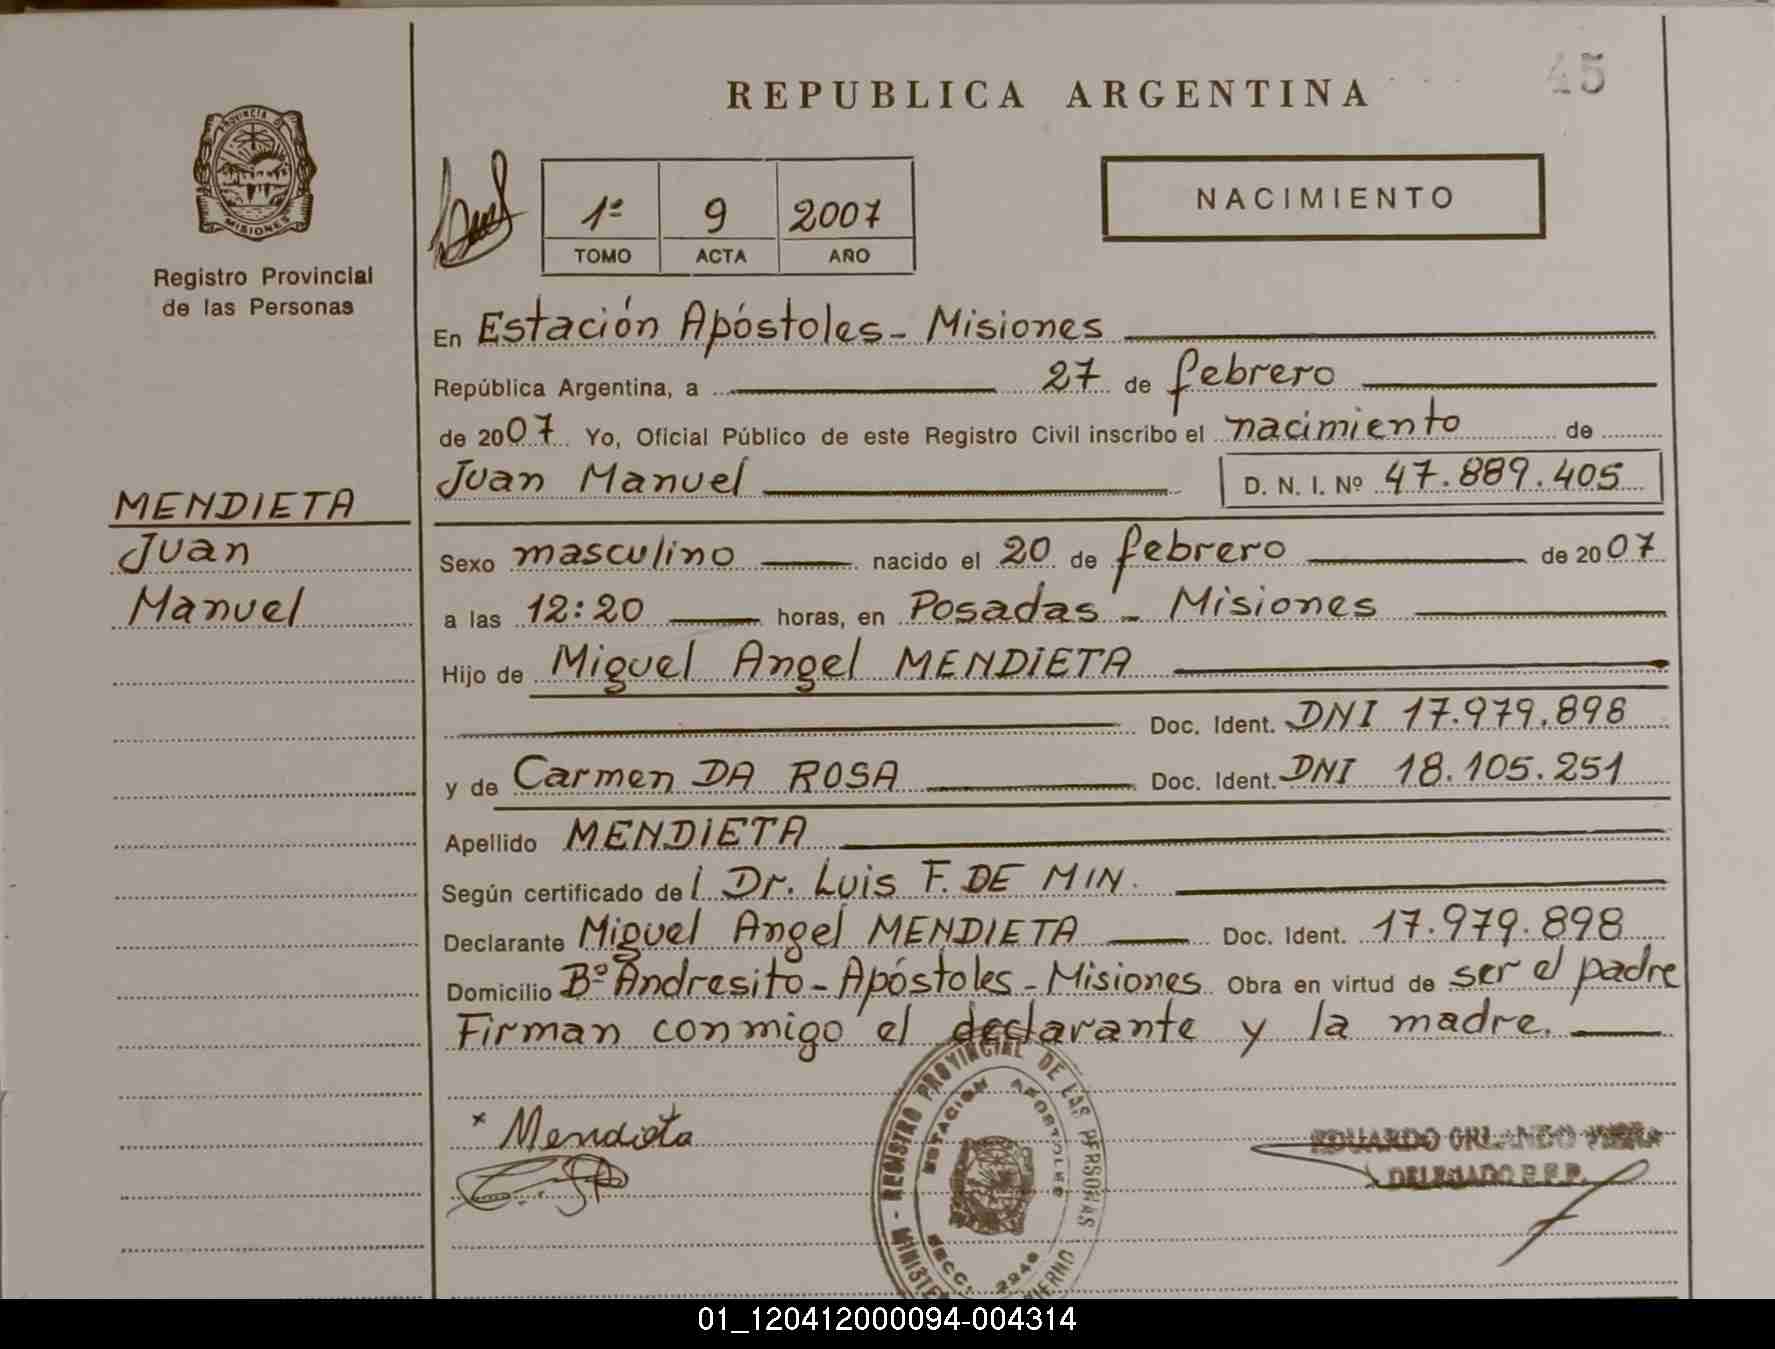 REPUBLICA ARGENTINA
45
PROVINCIA DE
MISIONES
Registro Provincial
de las Personas
1º 9 2007
TOMO ACTA AÑO
NACIMIENTO
En Estación Apóstoles - Misiones
República Argentina, a 27 de febrero
de 2007 Yo, Oficial Público de este Registro Civil inscribo el nacimiento de
Juan Manuel D. N. I. Nº 47.889.405
MENDIETA
Juan
Manuel
Sexo masculino nacido el 20 de febrero de 2007
a las 12:20 horas, en Posadas - Misiones
Hijo de Miguel Angel MENDIETA
Doc. Ident. DNI 17.979.898
y de Carmen DA ROSA Doc. Ident. DNI 18.105.251
Apellido MENDIETA
Según certificado del Dr. Luis F. DE MIN.
Declarante Miguel Angel MENDIETA Doc. Ident. 17.979.898
Domicilio Bº Andresito - Apóstoles - Misiones Obra en virtud de ser el padre
Firman conmigo el declarante y la madre.
x Mendieta
REGISTRO PROVINCIAL DE LAS PERSONAS
ESTACION APOSTOLES
SECC. 2240
EDUARDO ORLANDO
DELEGADO
01_120412000094-004314